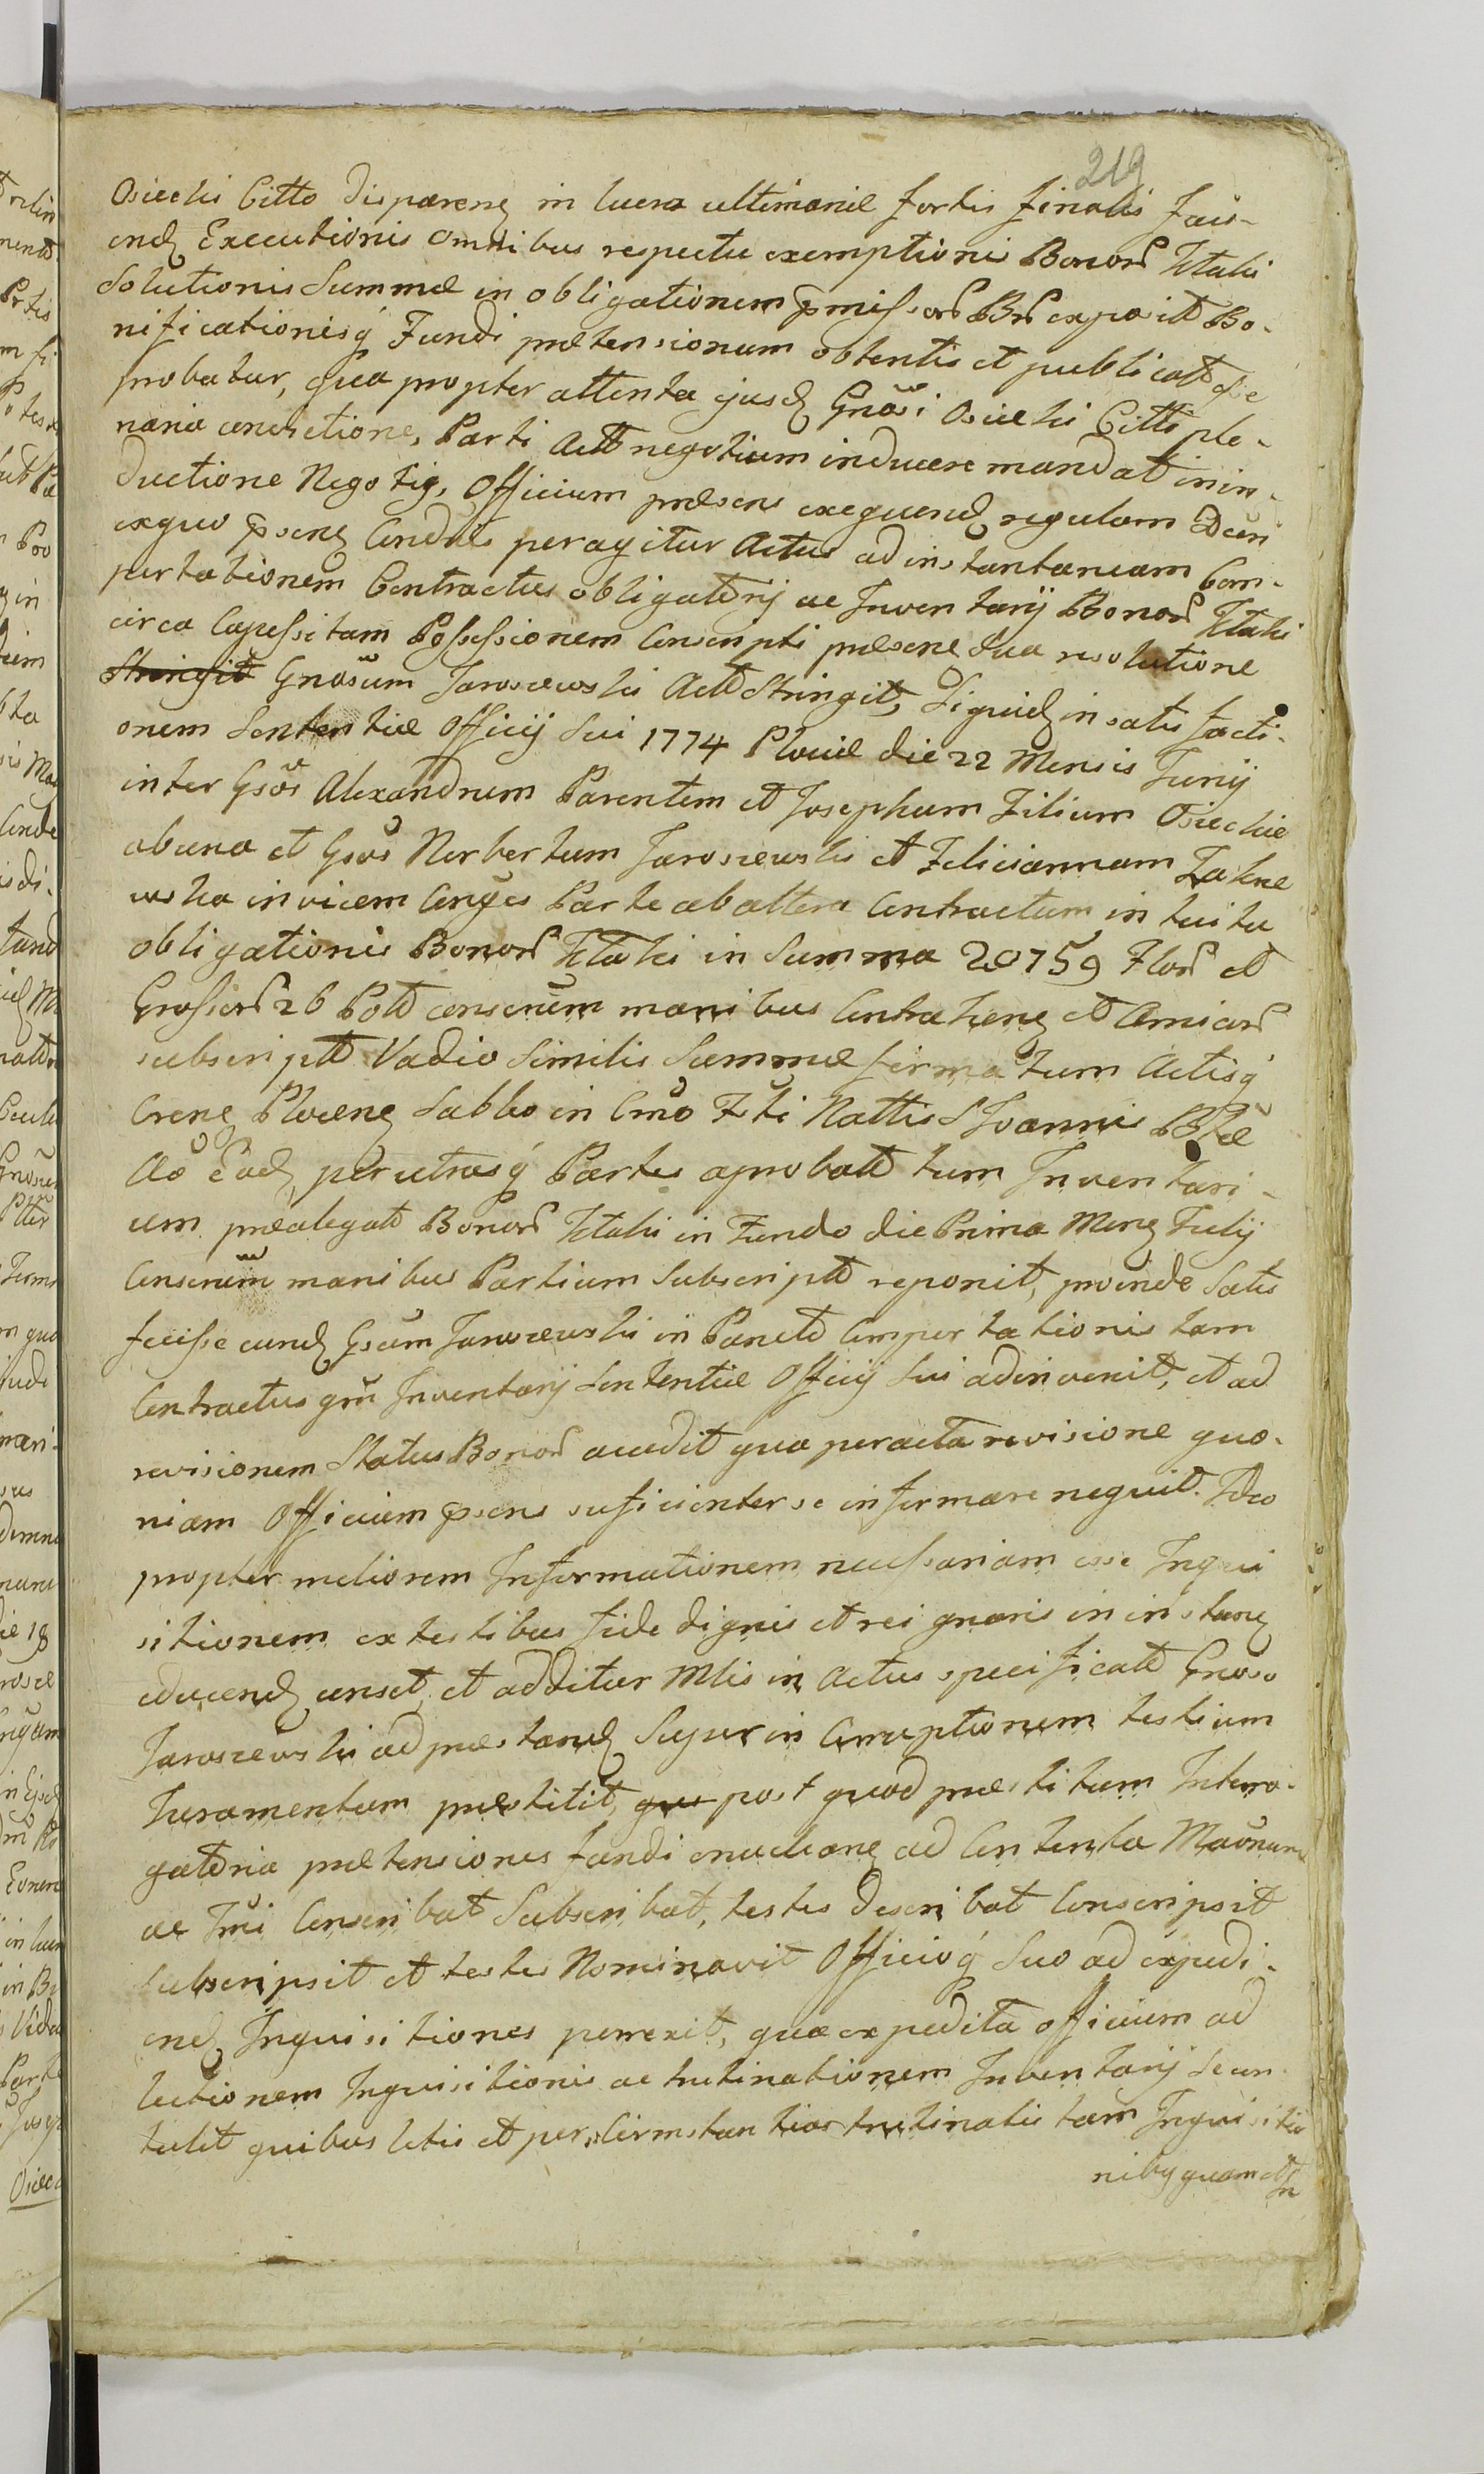 219
Osiecki Citto disparens in lucra ultimariæ sortis finalis faci-
end Executionis omnibus respectu exemptionis Bonor Ktaki
Solutionis Summæ in obligationem pmissor Br exposit Bo-
nificationisq Fundi prætensionum obtentis et publicatt
probatur, qua propter attenta ejusd Gnosi Osiecki Citti ple-
naria Actt negotium inducere mandat in in-
ductione Negotig, Officium præsens exequend regulam Dcti
exquo psens Condlis peragitur Actus ad instantaneam Com-
portationem Contractus obligatorij ac Inventarij Bonor Ktaki
circa Capessitam Possessionem Conscripti præsene sua resolutione
Stringit Gnosum Jaroszewski Actt Stringit, Siquid in satisfacti-
onem Sententiæ Officij Sui 1774 Plociæ die 22 Mensis Junij
inter Gsos Alexandrum Parentem et Josephum Filium Osieckie
ab una et Gsos Norbertum Jaroszewski et Feliciannam Zakrze
wska invicem Conges Parte ab altera Contractum intuitu
obligationis Bonor Ktaki in Summa 20759 Flor et
Grossor 26 Polt conscrum manibus Contrahens et Amicor
subscriptt Vadio Similis Summæ firmatum Actisq
Crens Plocens Sabbo in Cmo Fsti Nattis S Joannis Bsæ
Ao Eod, per utrasq Partes aprobatt tum Inventari-
um præalegatt Bonor Ktaki in Fundo die Prima Mens Julij
Conscrum manibus Partium Subscriptt reponit, proinde Satis
fecisse eund Gsum Jaroszewski in Puncto Comportationis tam
Contractus qm Inventarij Sententiæ Officij Sui adinvenit, et ad
revisionem Status Bonor accedit qua peracta revisione quo-
niam Officium psens suficienter se informare nequit. Ideo
propter meliorem Informationem necessariam esse Inqui
sitionem ex testibus fide dignis et rei gnaris in instans
educend censet, et additur Mlis in Actus specificatt Gnoso
Jaroszewski ad præstand Super in Corruptionem testium
Juramentum præstitit, que post quod præstitum Intero-
gatoria prætensiones fundi enucleans ad Contenta
ac Conscribat Subscribat, testes describat Conscripsit
subscripsit et testes Nominavit Officioq Suo ad expedi-
end Inquisitiones perrexit, qua expedita officium ad
lectionem Inquisitionis ac trutinationem Inventarij Se con-
tulit quibus letis et per Circmstantias trutinatis tam Inquisitio
nibq quam et In